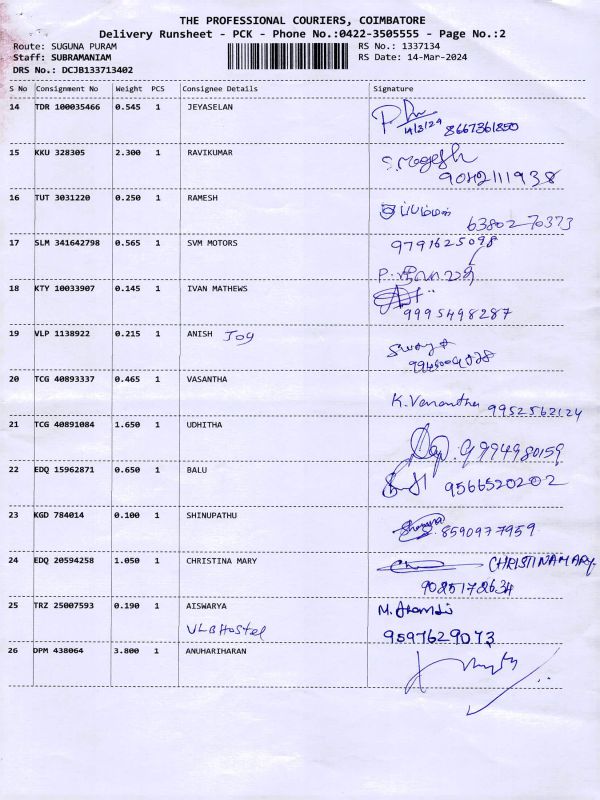 THE PROFESSIONAL COURIERS, COIMBATORE
Delivery Runsheet - PCK - Phone No.:0422-3505555 - Page No.:2
Route: SUGUNA PURAM RS No.: 1337134
Staff: SUBRAMANIAM RS Date: 14-Mar-2024
DRS No.: DCJB133713402
S No Consignment No Weight PCS Consignee Details Signature
14 TDR 100035466 0.545 1 JEYASELAN
14/3/24 8667361850
15 KKU 328305 2.300 1 RAVIKUMAR S. Mogesh
9042111938
16 TUT 3031220 0.250 1 RAMESH
63802 70373
17 SLM 341642798 0.565 1 SVM MOTORS 9791625098
18 KTY 10033907 0.145 1 IVAN MATHEWS
9995498287
19 VLP 1138922 0.215 1 ANISH Joy
20 TCG 40893337 0.465 1 VASANTHA
K. Vanantha 9952562124
21 TCG 40891084 1.650 1 UDHITHA
9994980159
22 EDQ 15962871 0.650 1 BALU
9566520202
23 KGD 784014 0.100 1 SHINUPATHU
8590977959
24 EDQ 20594258 1.050 1 CHRISTINA MARY CHRISTINA MARY
9025172634
25 TRZ 25007593 0.190 1 AISWARYA
VLB Hostel 9597629073
26 DPM 438064 3.800 1 ANUHARIHARAN